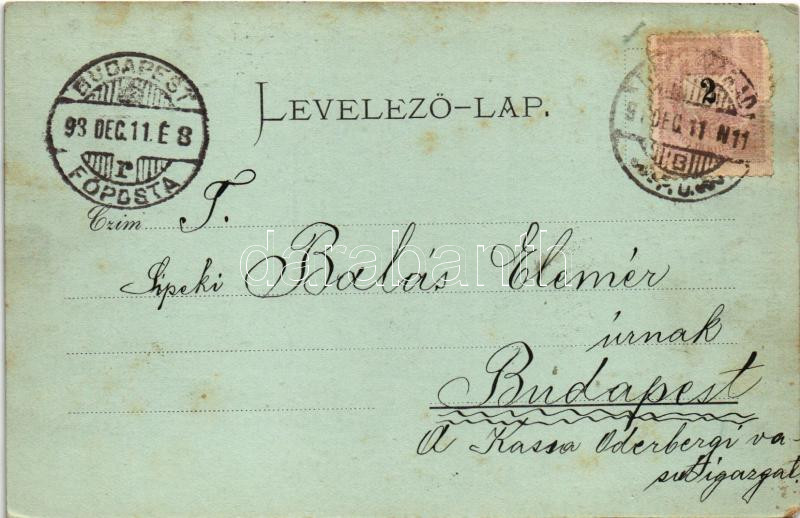 BUDAPEST
93 DEC. 11. É 8
r
FŐPOSTA
LEVELEZŐ-LAP.
2
DEC. 11 N11
B
Czim T.
Sipeki Balás Elemér
úrnak
Budapest
A Kassa Oderbergi va-
sutigazgat.
darabanth